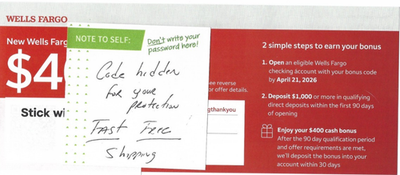 WELLS FARGO
New Wells Farg
$4
Stick wi
NOTE TO SELF:
Don't write your
password here!
Code hidden
for your
protection
FAST
Shipping
ee reverse
or offer details.
gthankyou
2 simple steps to earn your bonus
1. Open an eligible Wells Fargo
checking account with your bonus code
by April 21, 2026
2. Deposit $1,000 or more in qualifying
direct deposits within the first 90 days
of opening
Enjoy your $400 cash bonus
After the 90 day qualification period
and offer requirements are met,
we'll deposit the bonus into your
account within 30 days